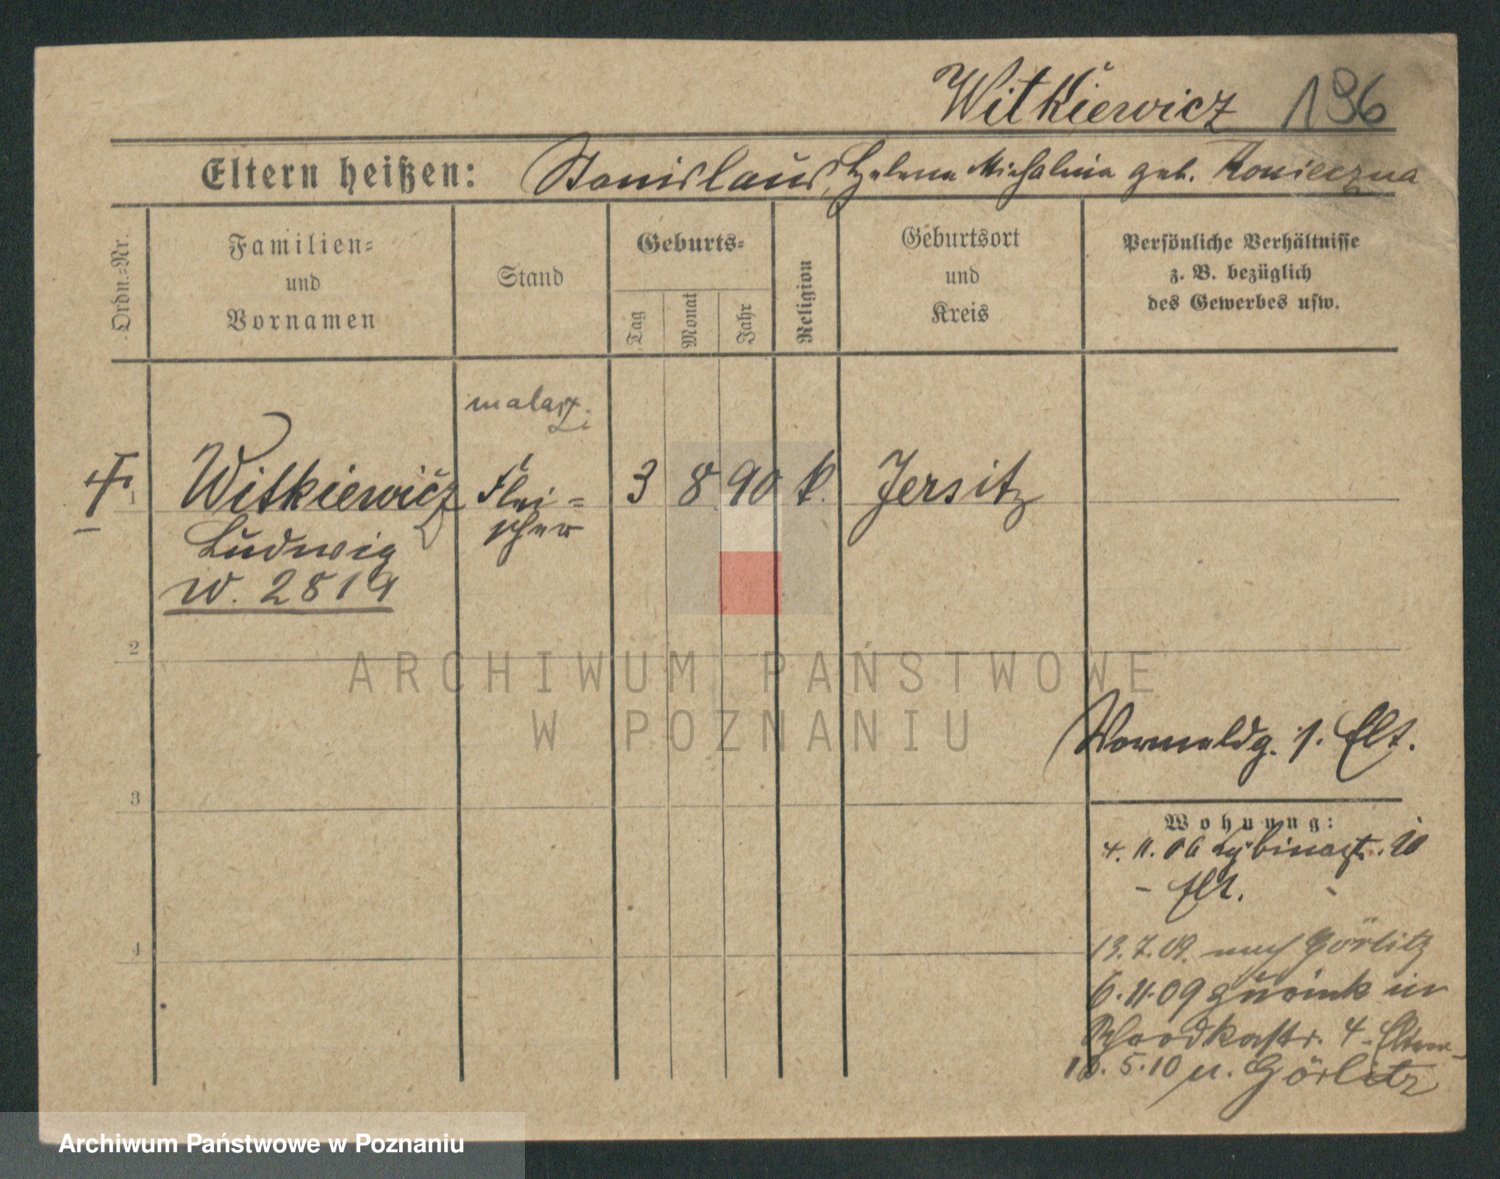 Witkiewicz 196
Eltern heißen: Stanislaus, Helena Michalina geb. Konieczna
Ordn.-Nr.
Familien-
und
Vornamen
Stand
Geburts-
Tag
Monat
Jahr
Religion
Geburtsort
und
Kreis
Persönliche Verhältnisse
z. B. bezüglich
des Gewerbes usw.
1
Witkiewicz
Ludwig
W. 2819
Flei=
scher
3 8 90 k.
Jersitz
2
ARCHIWUM PAŃSTWOWE
W POZNANIU
3
Vormeldg. s. Elt.
Wohnung:
4. 11. 06 Cybinastr. 10
- Elt. -
4
13. 7. 09. nach Görlitz
6. 11. 09 zurück in
4. Eltern
5. 10 n. Görlitz
Archiwum Państwowe w Poznaniu